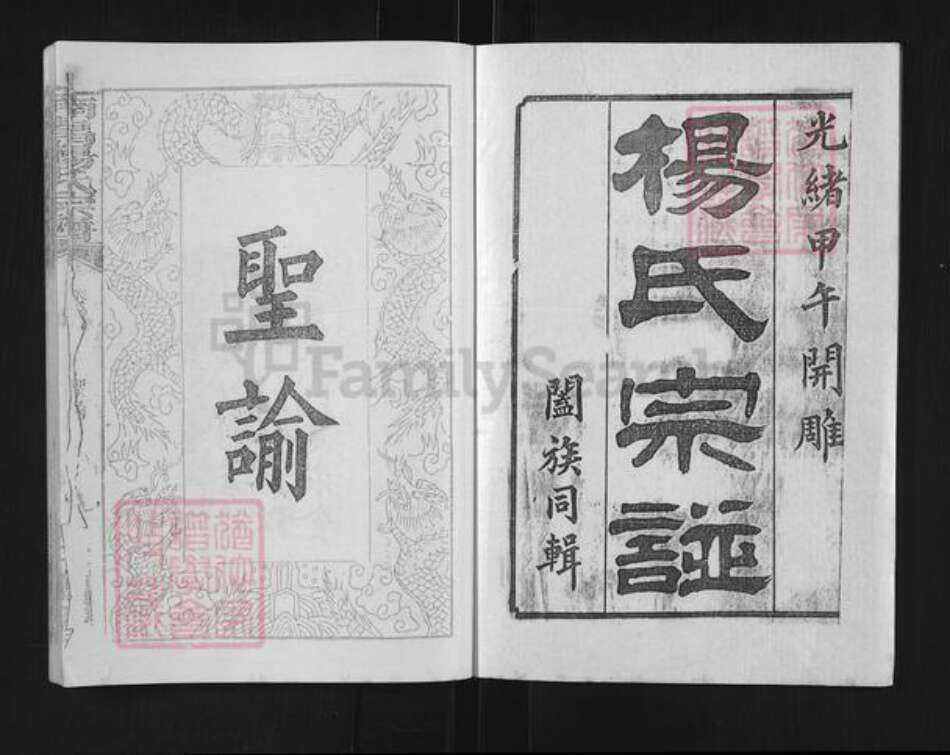 光緒甲午開雕
楊氏宗譜
闔族同輯
聖諭
FamilySearch